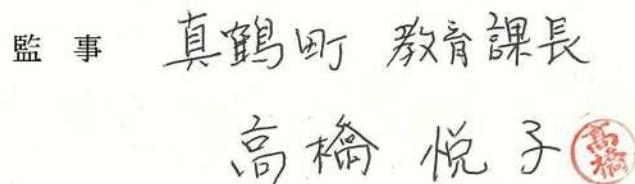 監事 真鶴町 教育課長
高橋 悦子 髙橋